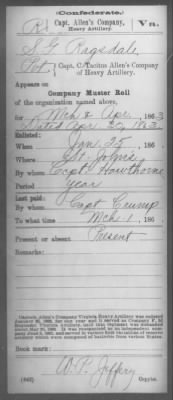 (Confederate.)
R
Capt. Allen's Company, Va.
Heavy Artillery.
S G Ragsdale
Pvt, Capt. C. Tacitus Allen's Company of Heavy Artillery.
Appears on
Company Muster Roll
of the organization named above,
for Mch & Apr, 1863
Enlisted:
When Jan 25, 186
Where St. Johns
By whom Capt Hawthorne
Period year
Last paid:
By whom Capt Crump
To what time Mch 1, 186
Present or absent Present
Remarks:
Book mark:
W. P. Jeffery
Copyist.